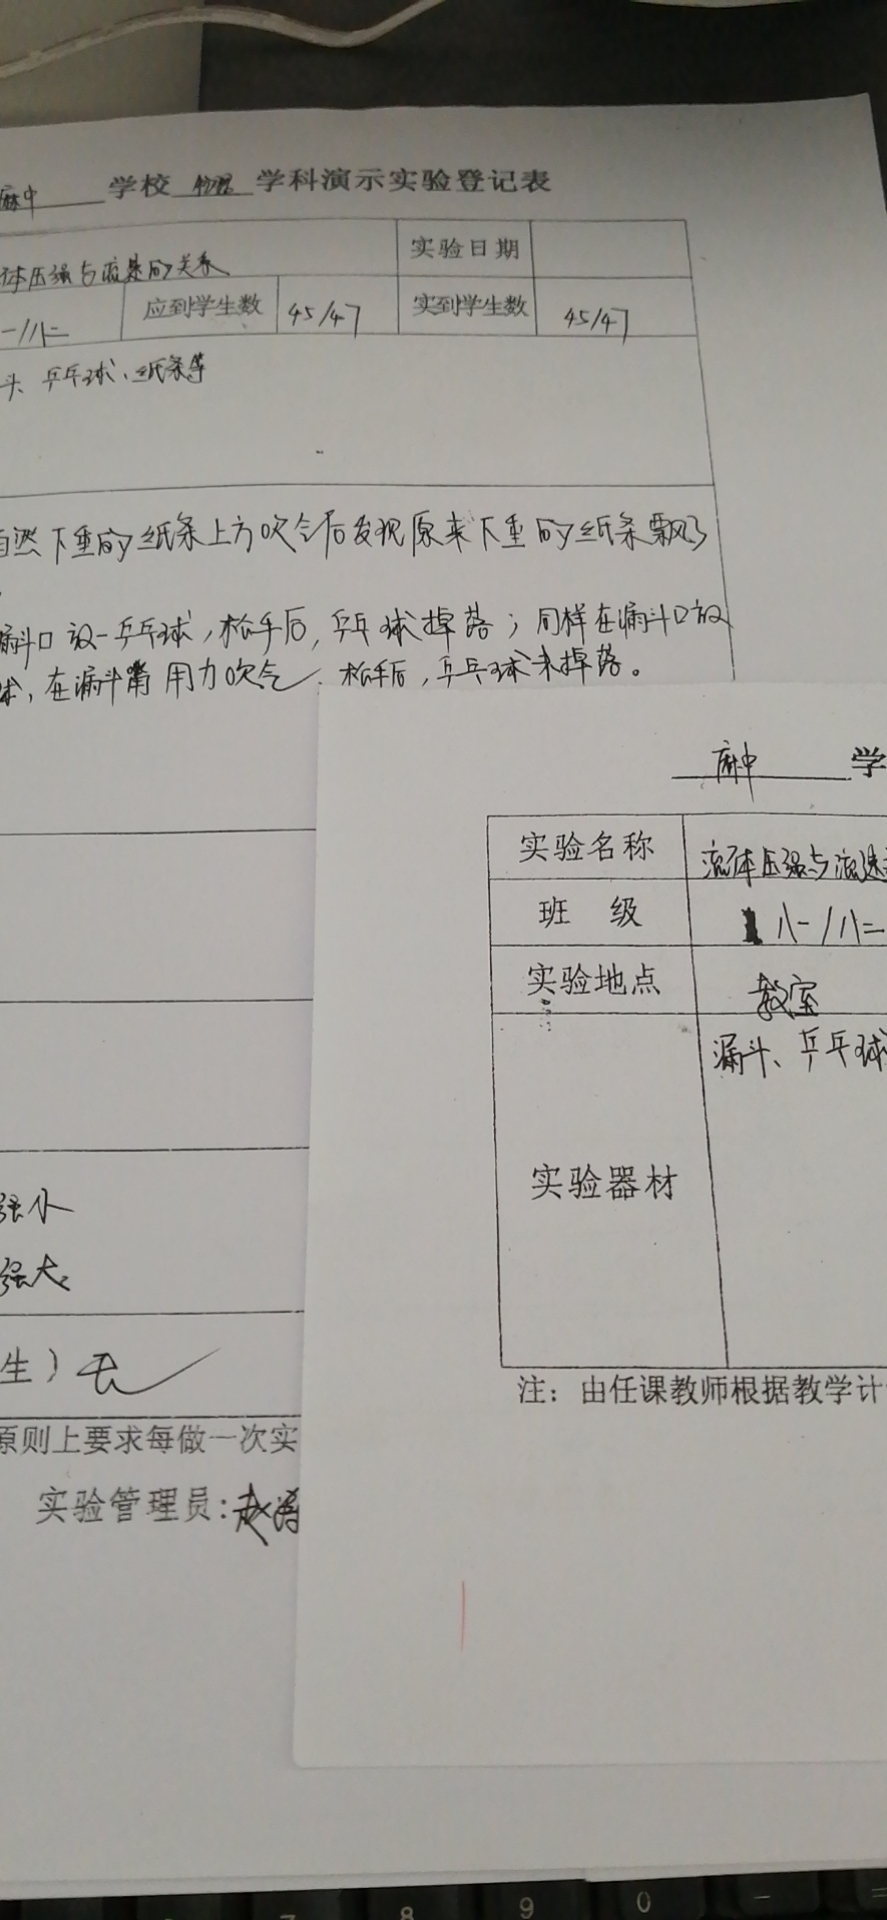 麻中 学校 物理 学科演示实验登记表
体压强与流速的关系 实验日期
一/八二 应到学生数 45/47 实到学生数 45/47
斗、乒乓球、纸条等
自然下垂的纸条上方吹气后发现原来下垂的纸条飘了
漏斗口放一乒乓球，松手后，乒乓球掉落；同样在漏斗口放
球，在漏斗嘴用力吹气，松手后，乒乓球未掉落。
强小
强大
生）无
原则上要求每做一次实
实验管理员：赵
麻中 学
实验名称 流体压强与流速
班 级 八一/八二
实验地点 教室
漏斗、乒乓球
实验器材
注：由任课教师根据教学计
7 8 9 0 - =